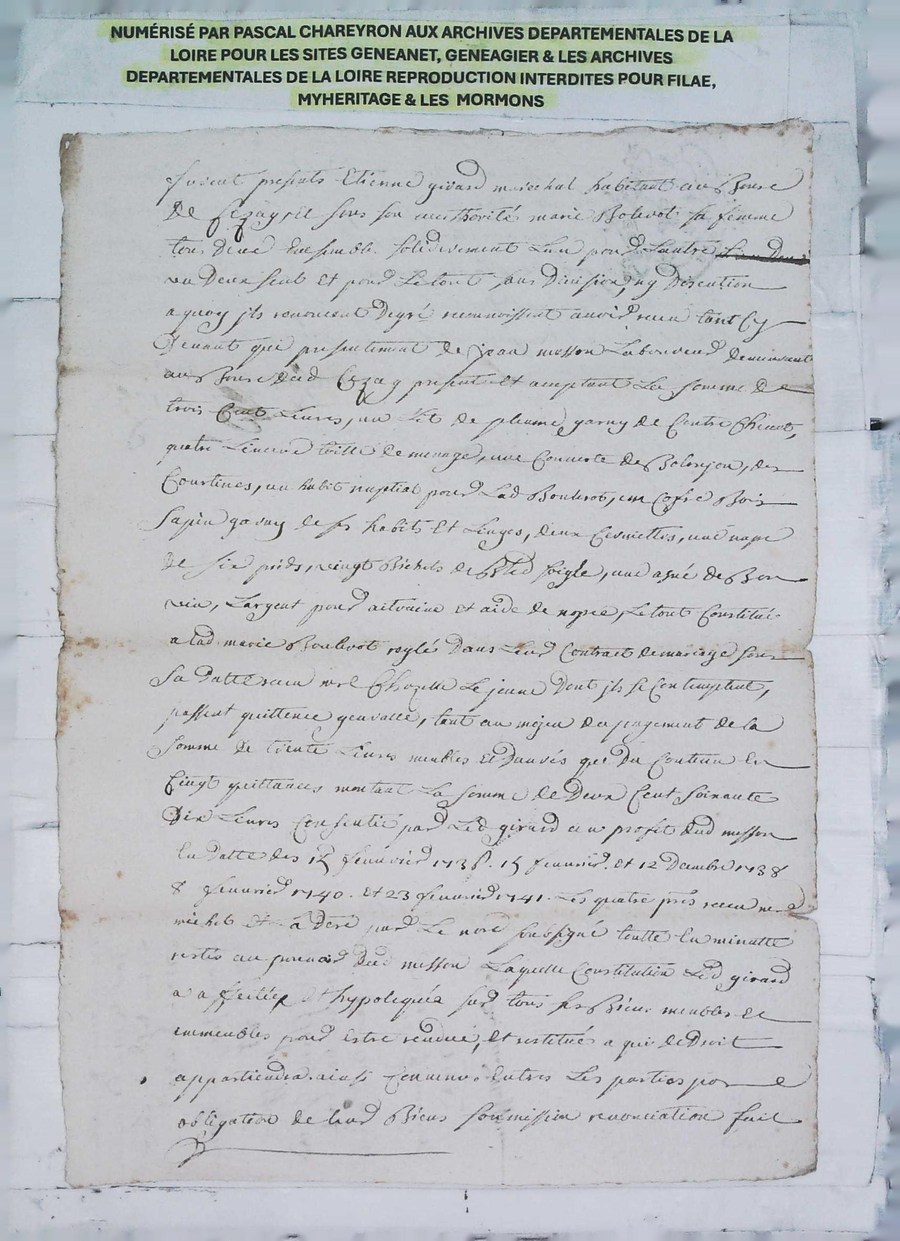 NUMÉRISÉ PAR PASCAL CHAREYRON AUX ARCHIVES DEPARTEMENTALES DE LA
LOIRE POUR LES SITES GENEANET, GENEAGIER & LES ARCHIVES
DEPARTEMENTALES DE LA LOIRE REPRODUCTION INTERDITES POUR FILAE,
MYHERITAGE & LES MORMONS
furent presents Etienne girard marechal habitant au Bourc
De sous son authorité marie Bolevot sa femme
tous Deux Ensemble solidérement L'un pour L'autre
un Deux seul Et pour Le tout sans Division, ny Discution
a quoy jls renoncent Degré reconnoissent avoir receu tant Cy
Devant que presentement de jean messon Laboureur Demeurant
au Bourc dud Cezay present Et acceptant La somme De
trois Cent Livres, un Lit de plume garny de Contre
quatre toille de menage, une Couverte de des
Courtines, un habit nuptial pour Lad Boulevot, un Cofre Bois
sapin garny de ses habits Et Linges, deux une nape
De six pieds, vingt Bichets de Bled seigle, une de Bon
vin, L'argent pour et aide de nopce, Le tout Constitué
a Lad marie Boulevot reglé Dans Leur Contract de mariage sous
Sa Datte receu me Chazelle Le jeune Dont jls se Contemptent,
passent quittence generalle, tant au mojen du payement de la
somme De trente Livres meubles et Danrés que Du Contenu En
Cinq quittances montant La somme De Deux Cent soixante
Dix Livres Consentie par Led girard au profit dud messon
En Datte des 15 feuvrier 15 feuvrier et 12 Decembre 1738
8 feuvrier 1740. et 23 feuvrier 1741. Les quatre receu me
et par Le nore soussigné toutte En minutte
restés au pouvoir dud messon Laquelle Constitution Led girard
a Et hypotequée sur tous ses Biens meubles et
immeubles pour Estre rendue, et restitué a qui de Droit
appartiendra ainsi Convenus Entres Les parties par
obligation de Leurs Biens soumission renonciation fait